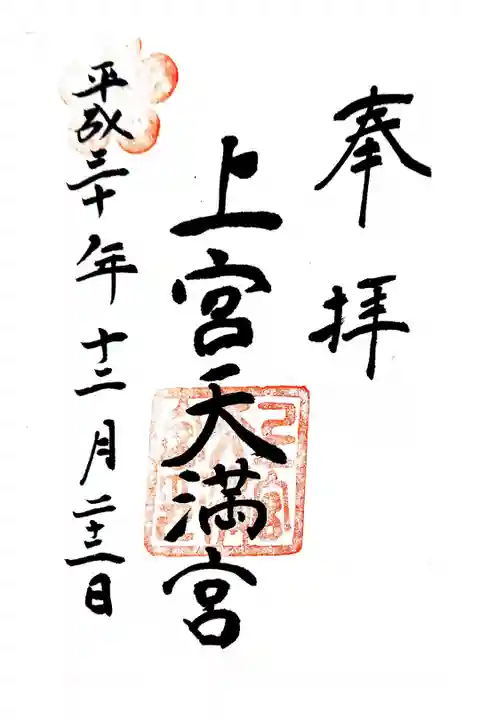 奉拝
上宮天満宮
平成三十年十二月二十三日